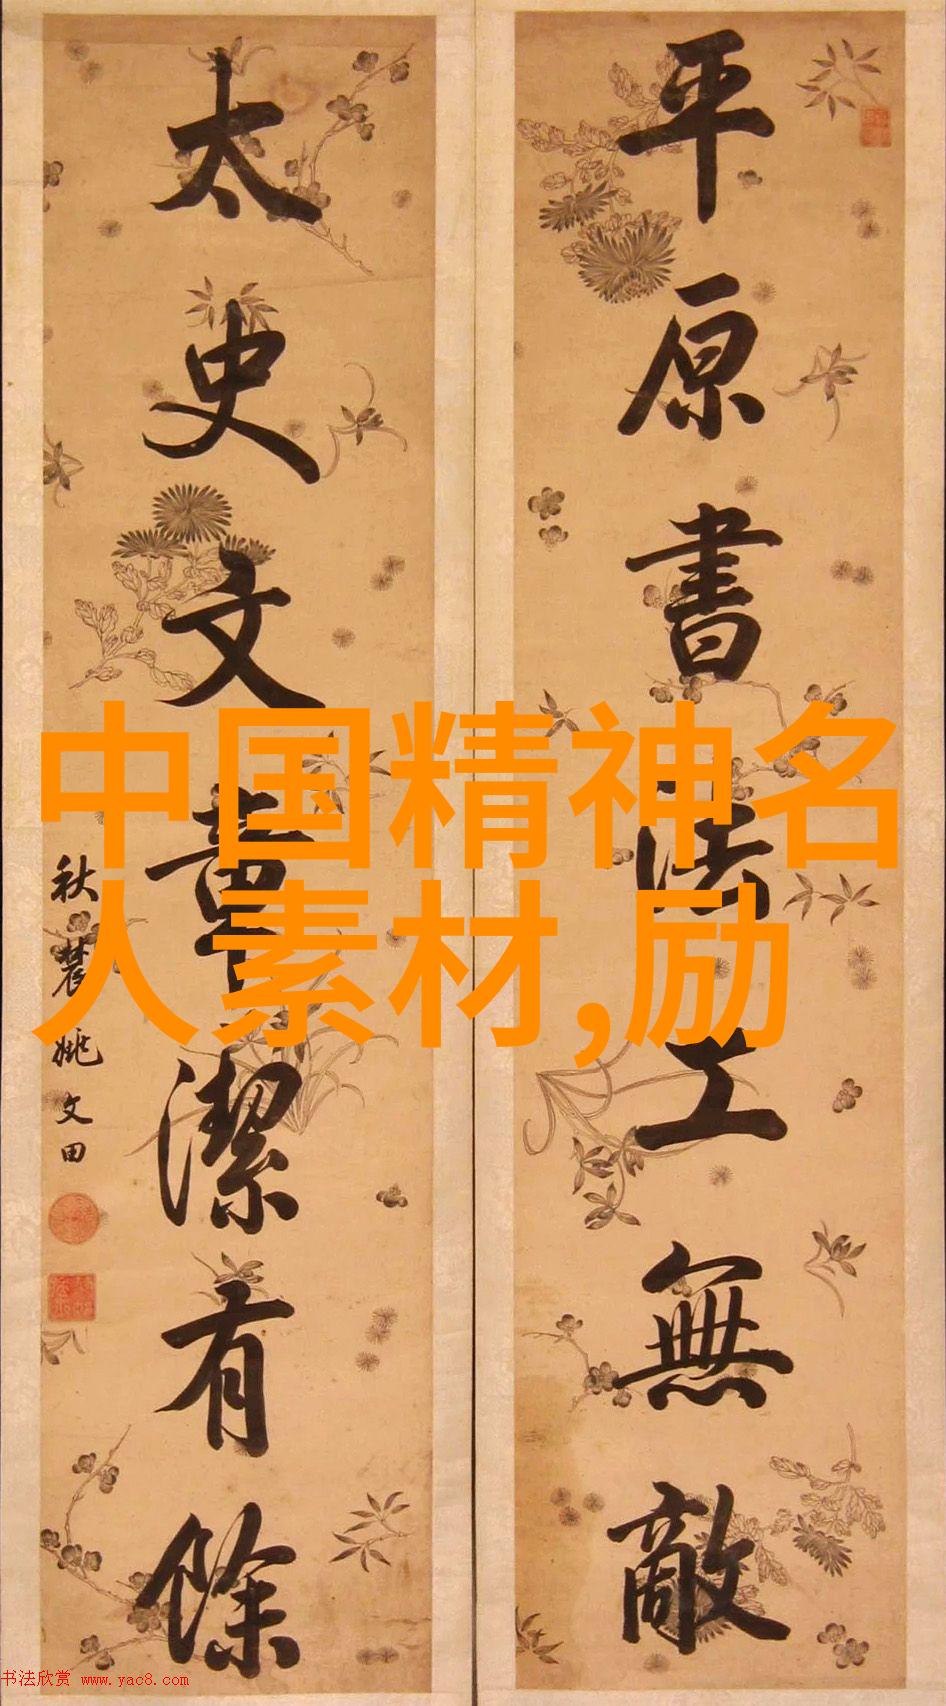 平原書法工無敵
太史文章潔有餘
秋農姚文田
中国精神名
人素材,励
书法欣赏 www.yac8.com